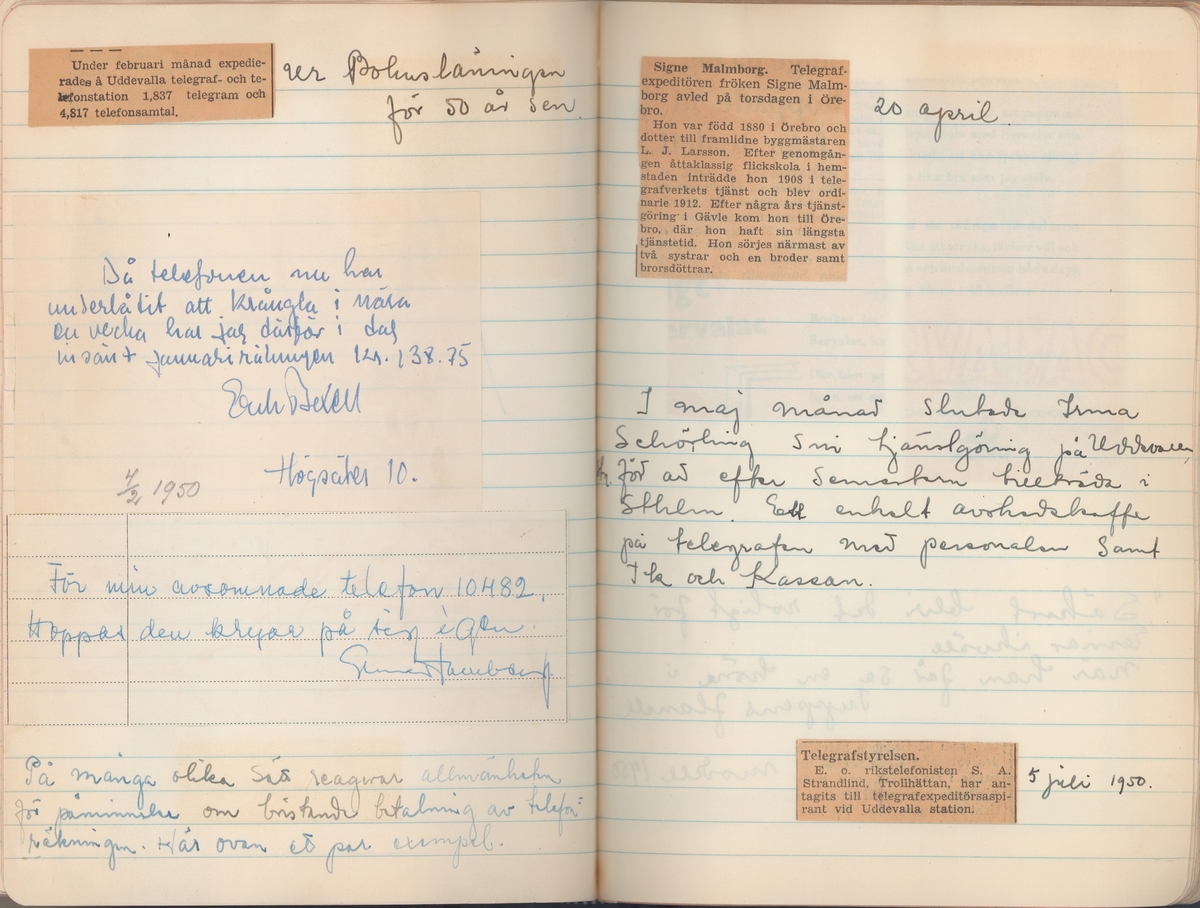 Under februari månad expedie-
rades å Uddevalla telegraf- och te-
lefonstation 1,837 telegram och
4,817 telefonsamtal.
ur Bohusläningen
för 50 år sen.
Då telefonen nu har
underlåtit att krångla i nära
en vecka har jag därför i dag
insänt januariräkningen kr. 138.75
Erik Bexell
Högsäter 10.
4/2 1950
För min avsomnade telefon 10482.
Hoppas den kryar på sig igen.
På många olika sätt reagerar allmänheten
för påminnelse om bristande betalning av telefon-
räkningen. Här ovan ett par exempel.
Signe Malmborg. Telegraf-
expeditören fröken Signe Malm-
borg avled på torsdagen i Öre-
bro.
Hon var född 1880 i Örebro och
dotter till framlidne byggmästaren
L. J. Larsson. Efter genomgån-
gen åttaklassig flickskola i hem-
staden inträdde hon 1908 i tele-
grafverkets tjänst och blev ordi-
narie 1912. Efter några års tjänst-
göring i Gävle kom hon till Öre-
bro, där hon haft sin längsta
tjänstetid. Hon sörjes närmast av
två systrar och en broder samt
brorsdöttrar.
20 april.
I maj månad slutade Irma
Schörling sin tjänstgöring på Uddevalla
för att efter semestern tillträda i
Sthlm. Ett enkelt avskedskaffe
på telegrafen med personalen samt
Tk och Kassan.
Telegrafstyrelsen.
E. o. rikstelefonisten S. A.
Strandlind, Trollhättan, har an-
tagits till telegrafexpeditörsaspi-
rant vid Uddevalla station.
5 juli 1950.